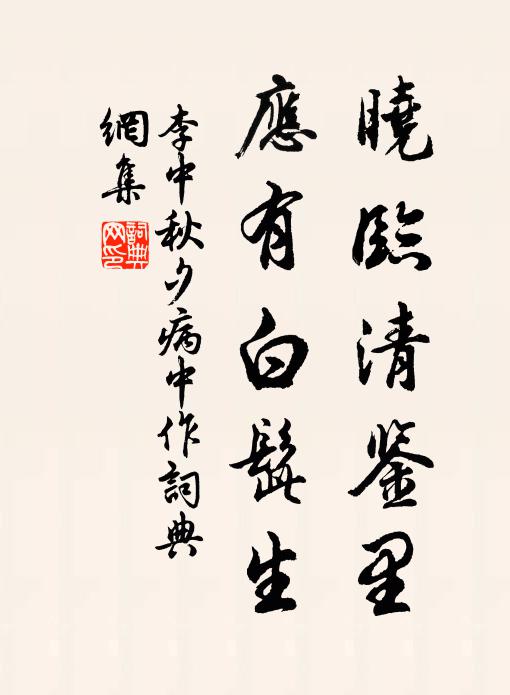 曉臨清鉴里
應有白髭生
李中秋夕病中作詞典
網集
詞典网印